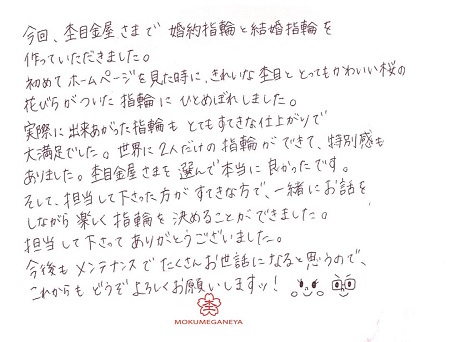 今回、杢目金屋さまで 婚約指輪と結婚指輪を
作っていただきました。
初めてホームページを見た時に、きれいな杢目ととってもかわいい桜の
花びらがついた指輪にひとめぼれしました。
実際に出来あがった指輪もとてもすてきな仕上がりで
大満足でした。世界に2人だけの指輪ができて、特別感も
ありました。杢目金屋さまを選んで本当に良かったです。
そして、担当して下さった方がすてきな方で、一緒にお話を
しながら楽しく指輪を決めることができました。
担当して下さってありがとうございました。
今後もメンテナンスでたくさんお世話になると思うので、
これからもどうぞよろしくお願いしますッ!
杢
MOKUMEGANEYA